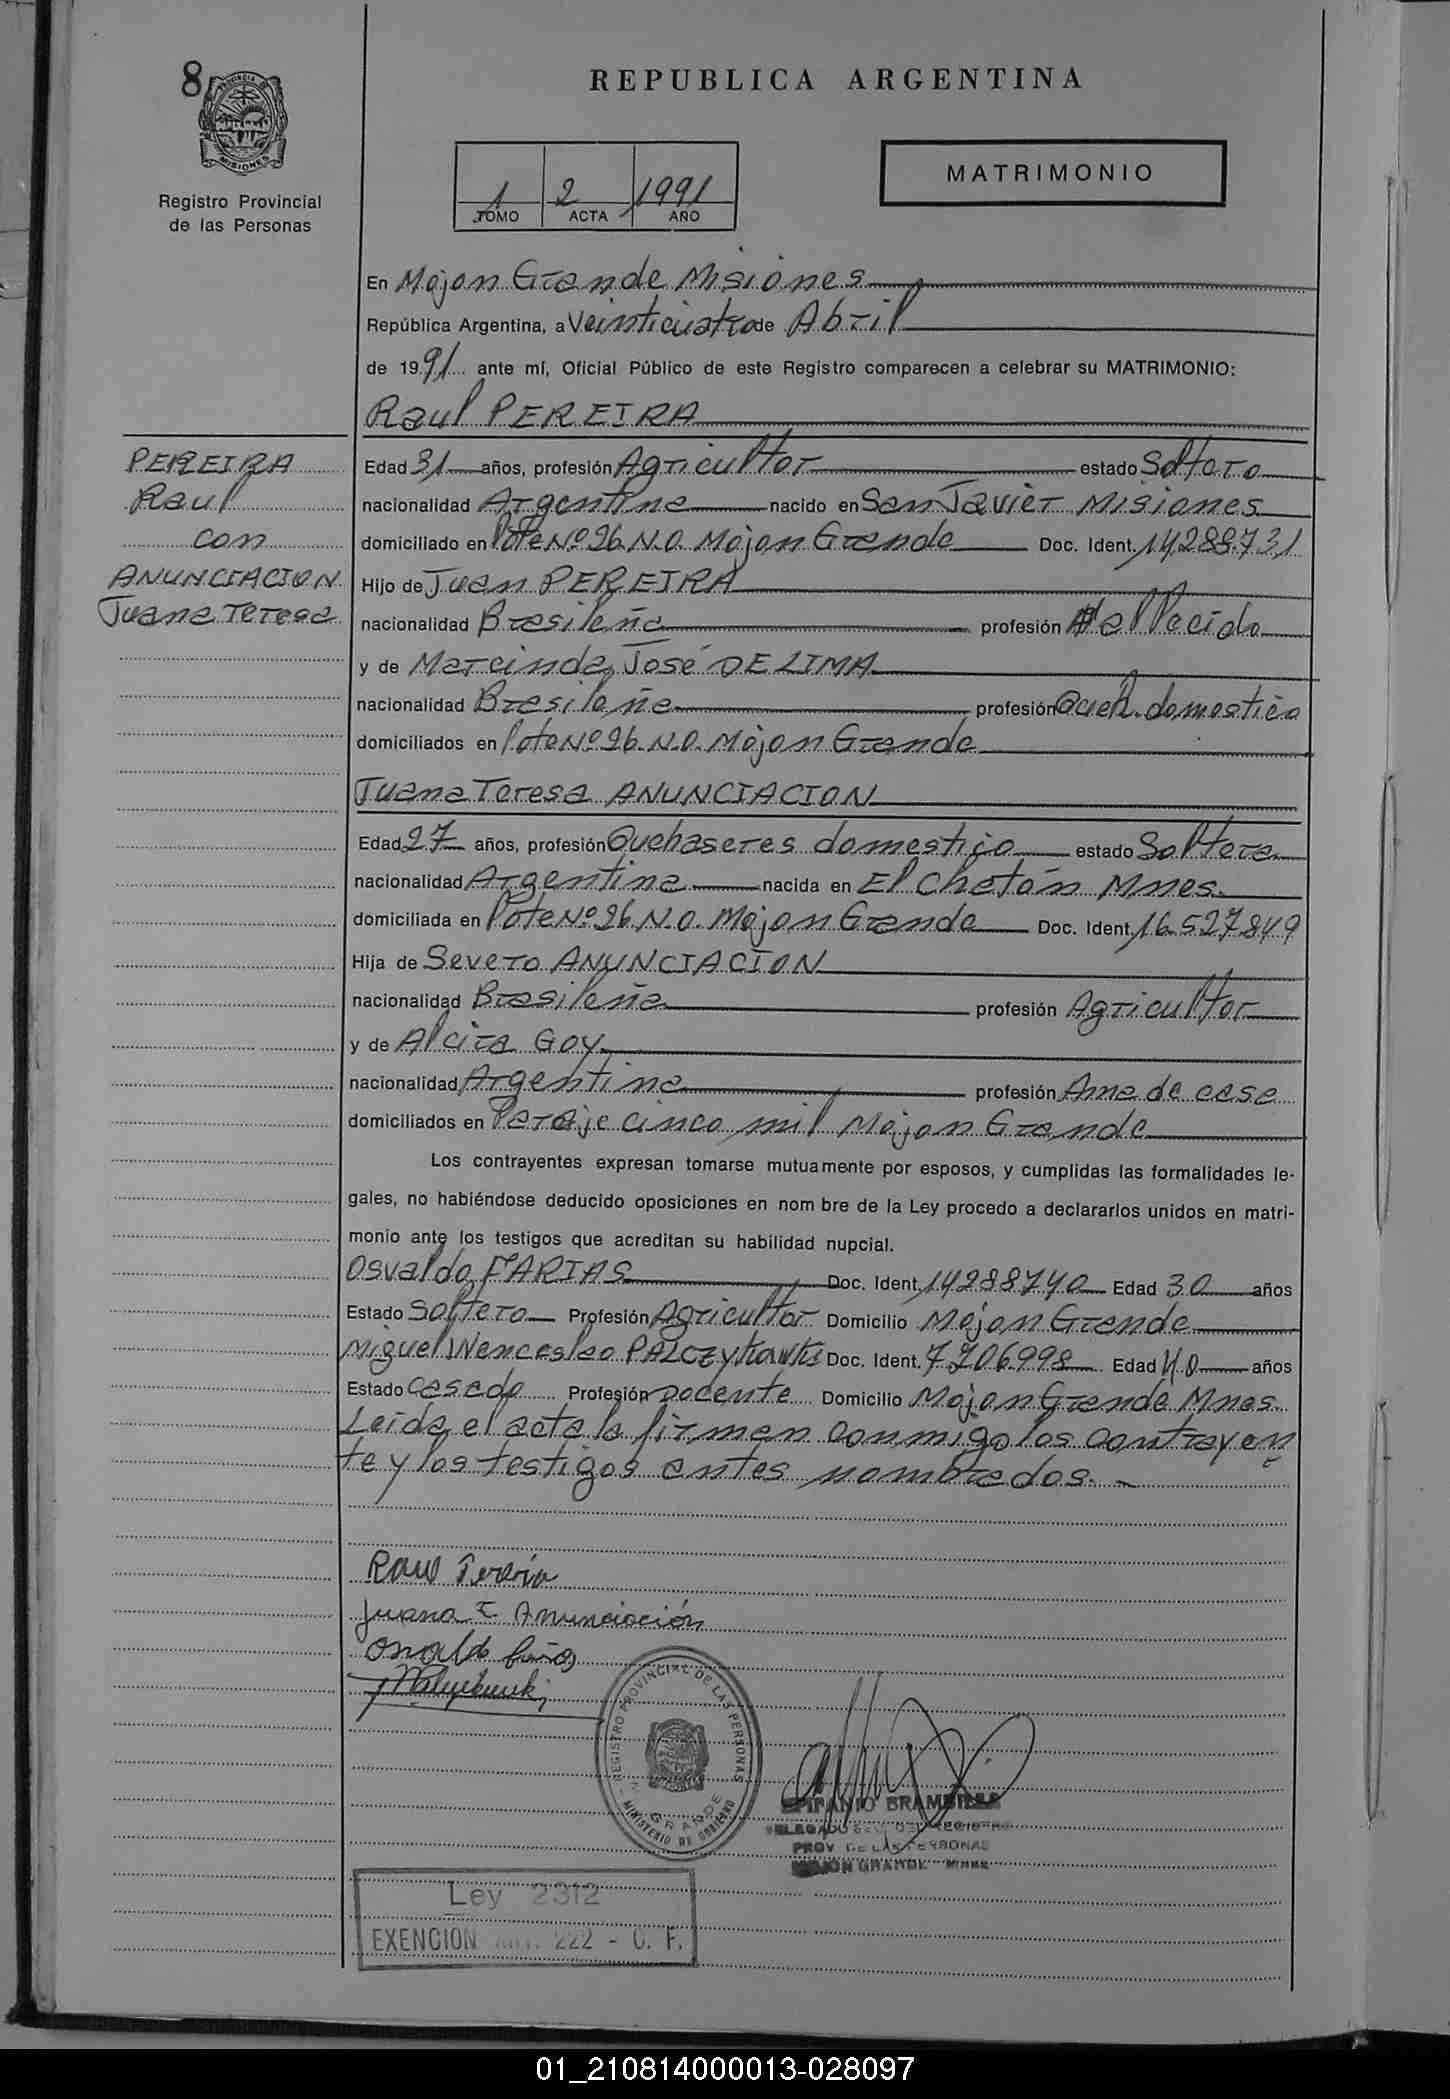 8
PROVINCIA DE
MISIONES
REPUBLICA ARGENTINA
Registro Provincial
de las Personas
1 2 1991
TOMO ACTA AÑO
MATRIMONIO
En Mojon Grande Misiones
República Argentina, a Veinticuatro de Abril
de 1991 ante mí, Oficial Público de este Registro comparecen a celebrar su MATRIMONIO:
Raul PEREIRA
PEREIRA
Raul
con
ANUNCIACION
Juana Teresa
Edad 31 años, profesión Agricultor estado Soltero
nacionalidad Argentina nacido en San Javier Misiones
domiciliado en lote Nº 26 N.O. Mojon Grande Doc. Ident. 14288.731
Hijo de Juan PEREIRA
nacionalidad Brasileña profesión
y de Marcinda José DE LIMA
nacionalidad Brasileña profesión Queh. domestico
domiciliados en lote Nº 26 N.O. Mojon Grande
Juana Teresa ANUNCIACION
Edad 27 años, profesión Quehaseres domestico estado Soltera
nacionalidad Argentina nacida en El Chatón Mnes.
domiciliada en lote Nº 26 N.O. Mojon Grande Doc. Ident. 16.527849
Hija de Severo ANUNCIACION
nacionalidad Brasileña profesión Agricultor
y de Alcira GOY
nacionalidad Argentina profesión Ama de casa
domiciliados en Paraje cinco mil Mojon Grande
Los contrayentes expresan tomarse mutuamente por esposos, y cumplidas las formalidades le-
gales, no habiéndose deducido oposiciones en nom bre de la Ley procedo a declararlos unidos en matri-
monio ante los testigos que acreditan su habilidad nupcial.
Osvaldo FARIAS Doc. Ident. 14288740 Edad 30 años
Estado Soltero Profesión Agricultor Domicilio Mojon Grande
Miguel Wenceslao Doc. Ident. 7706998 Edad 40 años
Estado Casado Profesión Docente Domicilio Mojon Grande Mnes.
Leida el acta la firman conmigo los contrayen
te y los testigos antes nombrados. -
Raul
Juana T Anunciación
REGISTRO PROVINCIAL DE LAS PERSONAS
GRANDE
MINISTERIO DE GOBIERNO
EPIFANIO BRAMBILLA
PROV DE LAS PERSONAS
MOJON GRANDE MNES
Ley 2312
EXENCION Art. 222 - C. F.
01_210814000013-028097